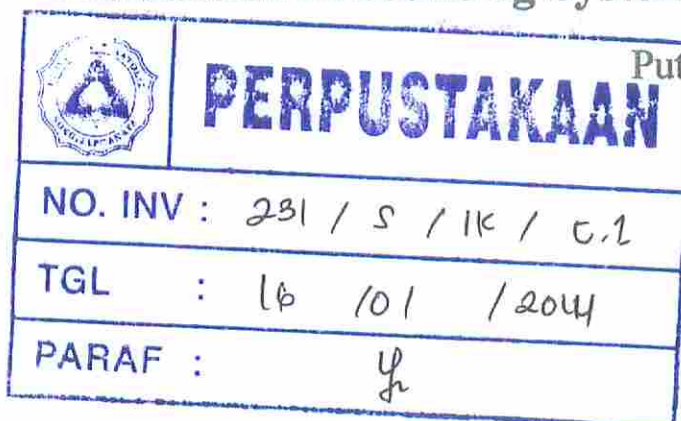 Put
PERPUSTAKAAN
NO. INV : 231 / S / IK / C.1
TGL : 16 / 01 / 2014
PARAF :